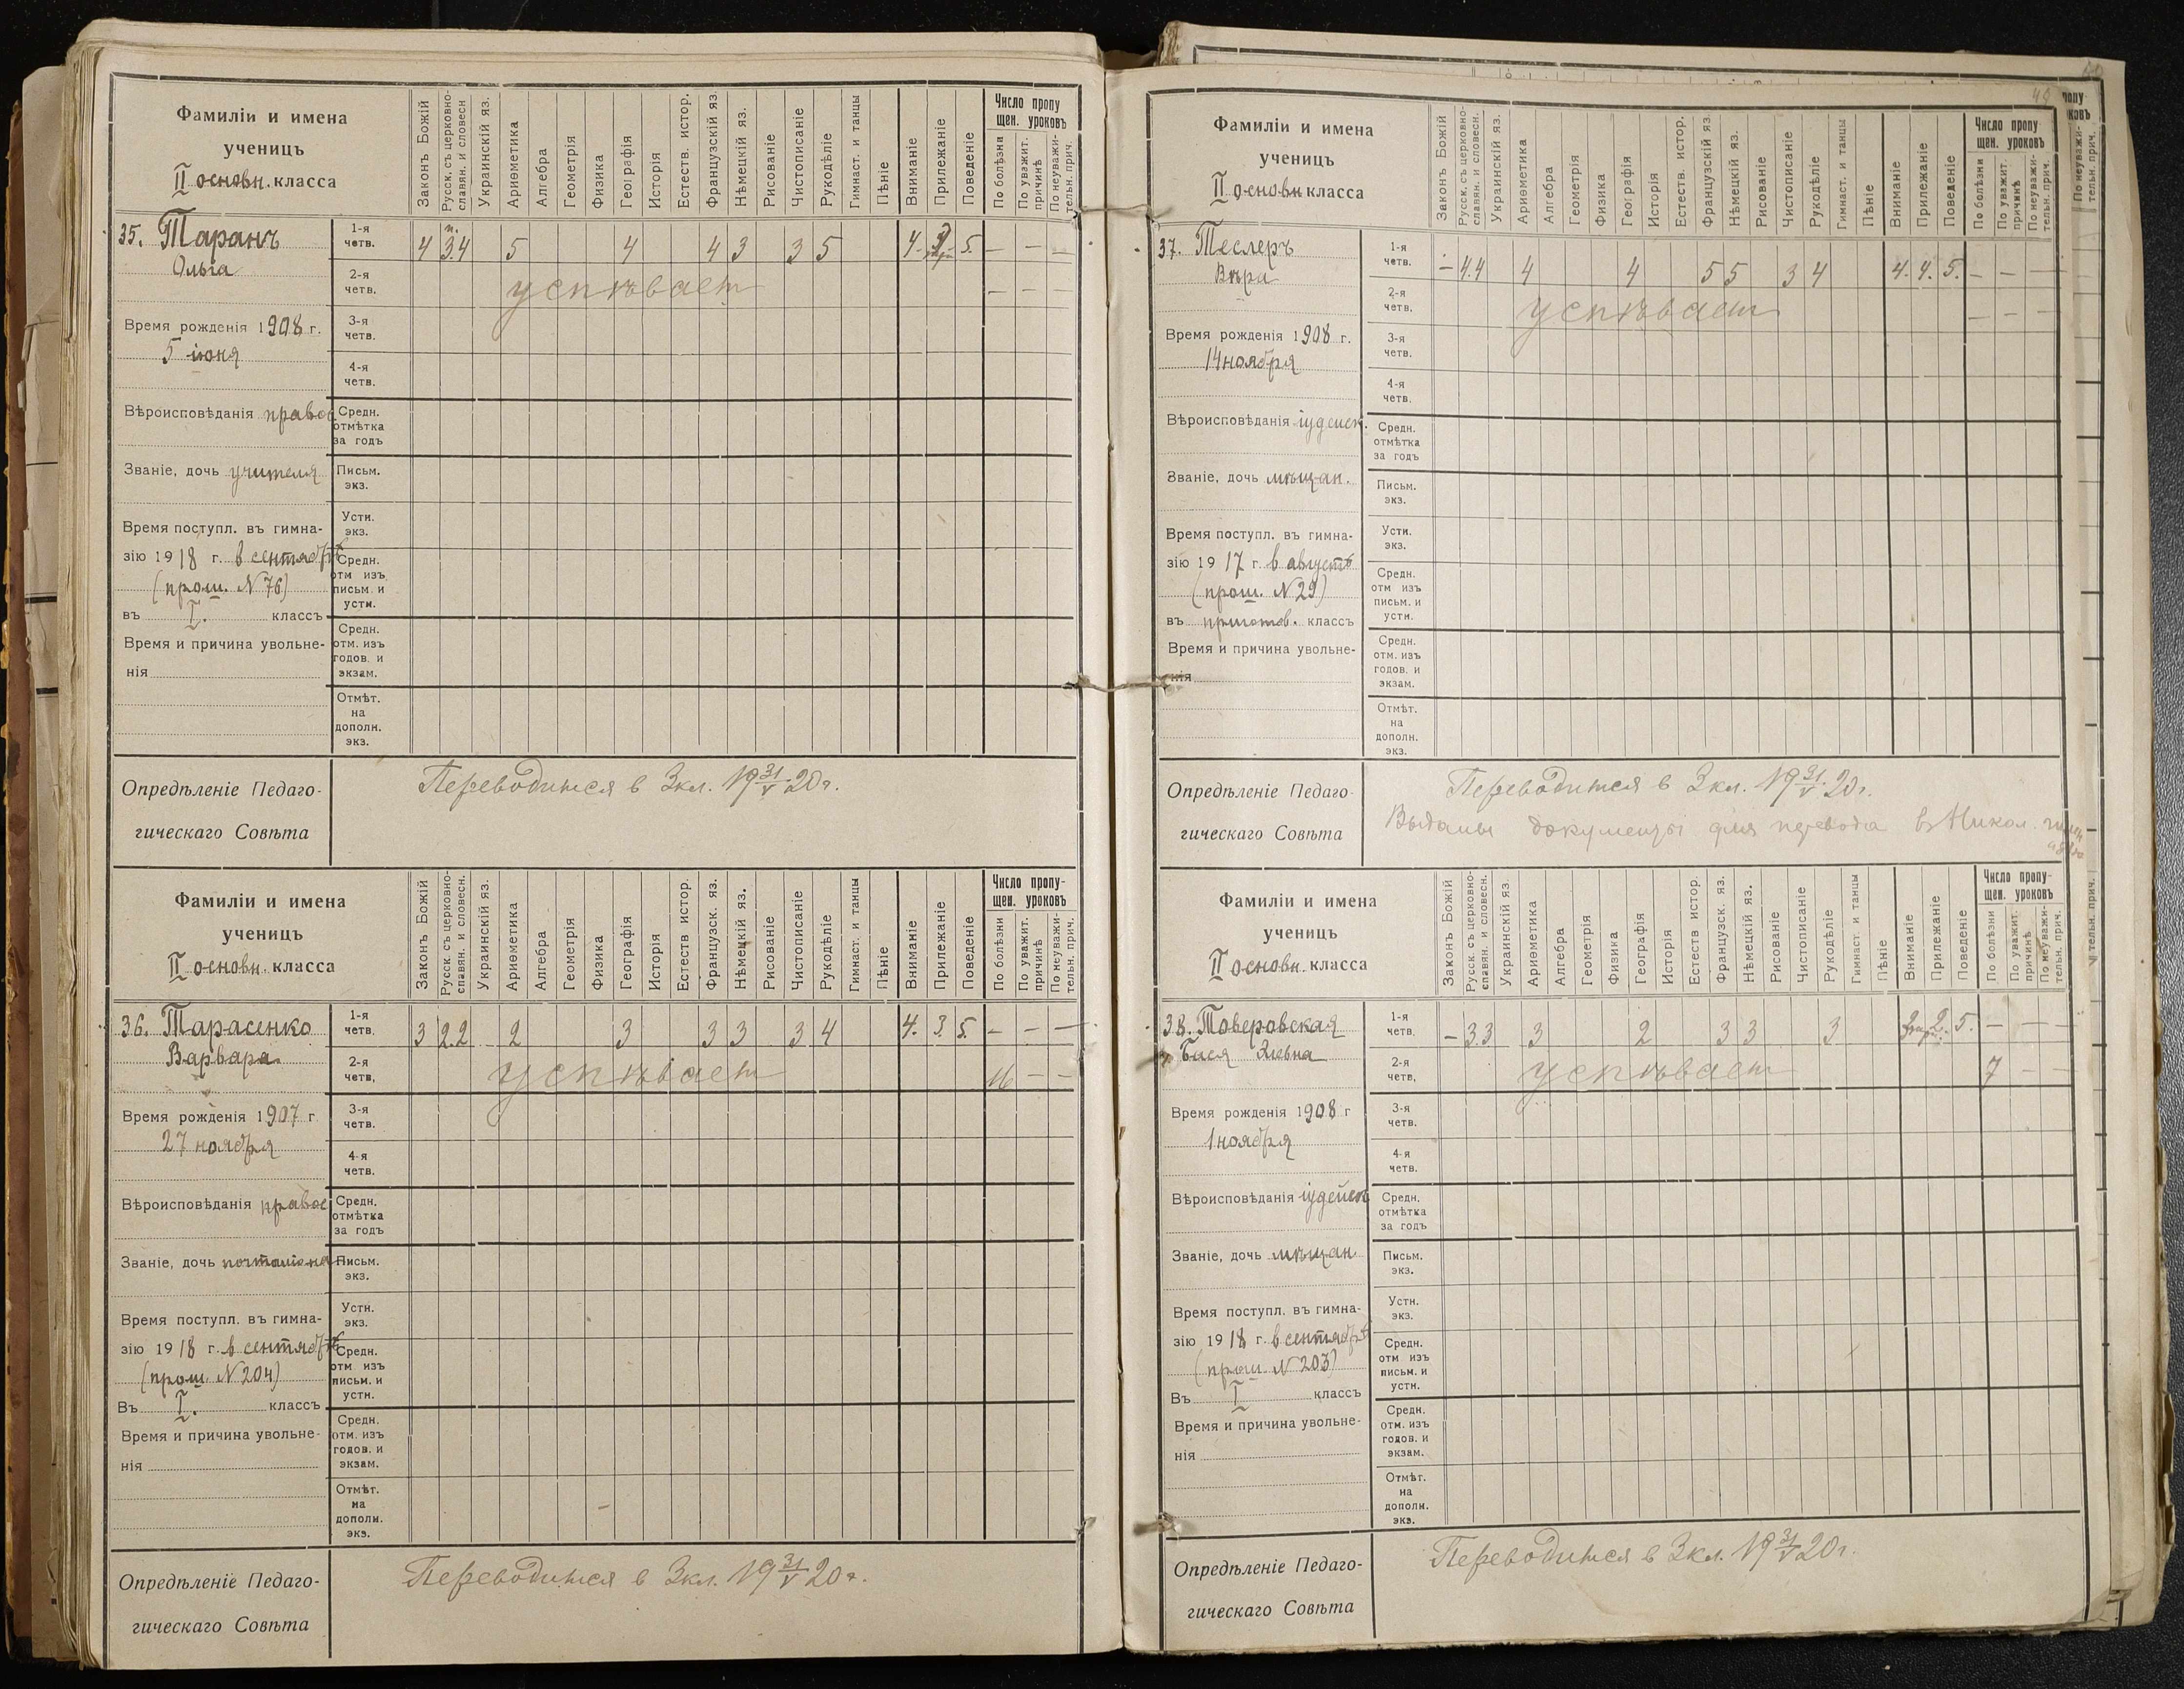 Фамиліи и имена
ученицъ
II основн. класса
Законъ Божій
Русск. съ церковно-
славян. и словесн
Украинскій яз.
Ариѳметика
Алгебра
Геометрія
Физика
Географія
Исторія
Естеств. истор.
Французскій яз.
Нѣмецкій яз.
Рисованіе
Чистописаніе
Рукодѣліе
Гимнаст. и танцы
Пѣніе
Вниманіе
Прилежаніе
Поведеніе
Число пропу
щен. уроковъ
По болѣзна
По уважит.
причинѣ
По неуважи-
тельн. прич.
35. Таранъ
Ольга
1-я
четв.
4 3.4 5 4 4 3 3 5 4. 5. — — —
2-я
четв.
успѣвает — — —
Время рожденія 1908 г.
5 іюня
3-я
четв.
4-я
четв.
Вѣроисповѣданія правос
Средн.
отмѣтка
за годъ
Званіе, дочь учителя
Письм.
экз.
Время поступл. въ гимна-
зію 1918 г. в сентябрѣ
(прош. N 76)
въ I. классъ
Устн.
экз.
Средн.
отм изъ
письм. и
устн.
Время и причина увольне-
нія
Средн.
отм. изъ
годов. и
экзам.
Отмѣт.
на
дополн.
экз.
Опредѣленіе Педаго-
гическаго Совѣта
Переводится в 3 кл. 19 31/V 20 г.
Фамиліи и имена
ученицъ
II основн. класса
Законъ Божій
Русск. съ церковно-
славян. и словесн.
Украинскій яз.
Ариѳметика
Алгебра
Геометрія
Физика
Географія
Исторія
Естеств истор.
Французск. яз.
Нѣмецкій яз.
Рисованіе
Чистописаніе
Рукодѣліе
Гимнаст. и танцы
Пѣніе
Вниманіе
Прилежаніе
Поведеніе
Число пропу-
щен. уроковъ
По болѣзни
По уважит.
причинѣ
По неуважи-
тельн. прич.
36. Тарасенко
Варвара
1-я
четв.
3 2.2 2 3 3 3 3 4 4. 3. 5. — — —
2-я
четв,
успѣвает 16 — —
Время рожденія 1907 г
27 ноября
3-я
четв.
4-я
четв.
Вѣроисповѣданія правос
Средн.
отмѣтка
за годъ
Званіе, дочь почталіона
Письм.
экз.
Время поступл. въ гимна-
зію 1918 г. в сентябрѣ
(прош. N 204)
Въ I. классъ
Устн.
экз.
Средн.
отм изъ
письм. и
устн.
Время и причина увольне-
нія
Средн.
отм. изъ
годов. и
экзам.
Отмѣт.
на
дополн.
экз.
Опредѣленіе Педаго-
гическаго Совѣта
Переводится в 3 кл. 19 31/V 20 г.
Фамиліи и имена
ученицъ
II основн класса
Законъ Божій
Русск. съ церковно-
славян. и словесн.
Украинскій яз.
Ариѳметика
Алгебра
Геометрія
Физика
Географія
Исторія
Естеств. истор.
Французскій яз.
Нѣмецкій яз.
Рисованіе
Чистописаніе
Рукодѣліе
Гимнаст. и танцы
Пѣніе
Вниманіе
Прилежаніе
Поведеніе
Число пропу-
щен. уроковъ
По болѣзни
По уважит.
причинѣ
По неуважи-
тельн. прич.
37. Теслеръ
Вѣра
1-я
четв.
— 4.4 4 4 5 5 3 4 4. 4. 5. — — —
2-я
четв.
успѣвает — — —
Время рожденія 1908 г.
14 ноября
3-я
четв.
4-я
четв.
Вѣроисповѣданія іудейск.
Средн.
отмѣтка
за годъ
Званіе, дочь мѣщан.
Письм.
экз.
Время поступл. въ гимна-
зію 1917 г. в августѣ
(прош. N 29)
въ приготов. классъ
Устн.
экз.
Средн.
отм изъ
письм. и
устн.
Время и причина увольне-
нія
Средн.
отм. изъ
годов. и
экзам.
Отмѣт.
на
дополн.
экз.
Опредѣленіе Педаго-
гическаго Совѣта
Переводится в 3 кл. 19 31/V 20 г.
Выданы документы для перевода въ Никол.
Фамиліи и имена
ученицъ
II основн. класса
Законъ Божій
Русск. съ церковно-
славян. и словесн.
Украинскій яз.
Ариѳметика
Алгебра
Геометрія
Физика
Географія
Исторія
Естеств истор.
Французск. яз.
Нѣмецкій яз.
Рисованіе
Чистописаніе
Рукодѣліе
Гимнаст. и танцы
Пѣніе
Вниманіе
Прилежаніе
Поведеніе
Число пропу-
щен. уроковъ
По болѣзни
По уважит.
причинѣ
По неуважи-
тельн. прич.
38. Товеровская
Бася
1-я
четв.
— 3.3 3 2 3 3 3 2. 5. — — —
2-я
четв,
успѣвает 7 — —
Время рожденія 1908 г
1 ноября
3-я
четв.
4-я
четв.
Вѣроисповѣданія іудейск
Средн.
отмѣтка
за годъ
Званіе, дочь мѣщан
Письм.
экз.
Время поступл. въ гимна-
зію 1918 г. в сентябрѣ
(прош. N 203)
Въ I классъ
Устн.
экз.
Средн.
отм изъ
письм. и
устн.
Время и причина увольне-
нія
Средн.
отм. изъ
годов. и
экзам.
Отмѣт.
на
дополн.
экз.
Опредѣленіе Педаго-
гическаго Совѣта
Переводится в 3 кл. 19 31/V 20 г.